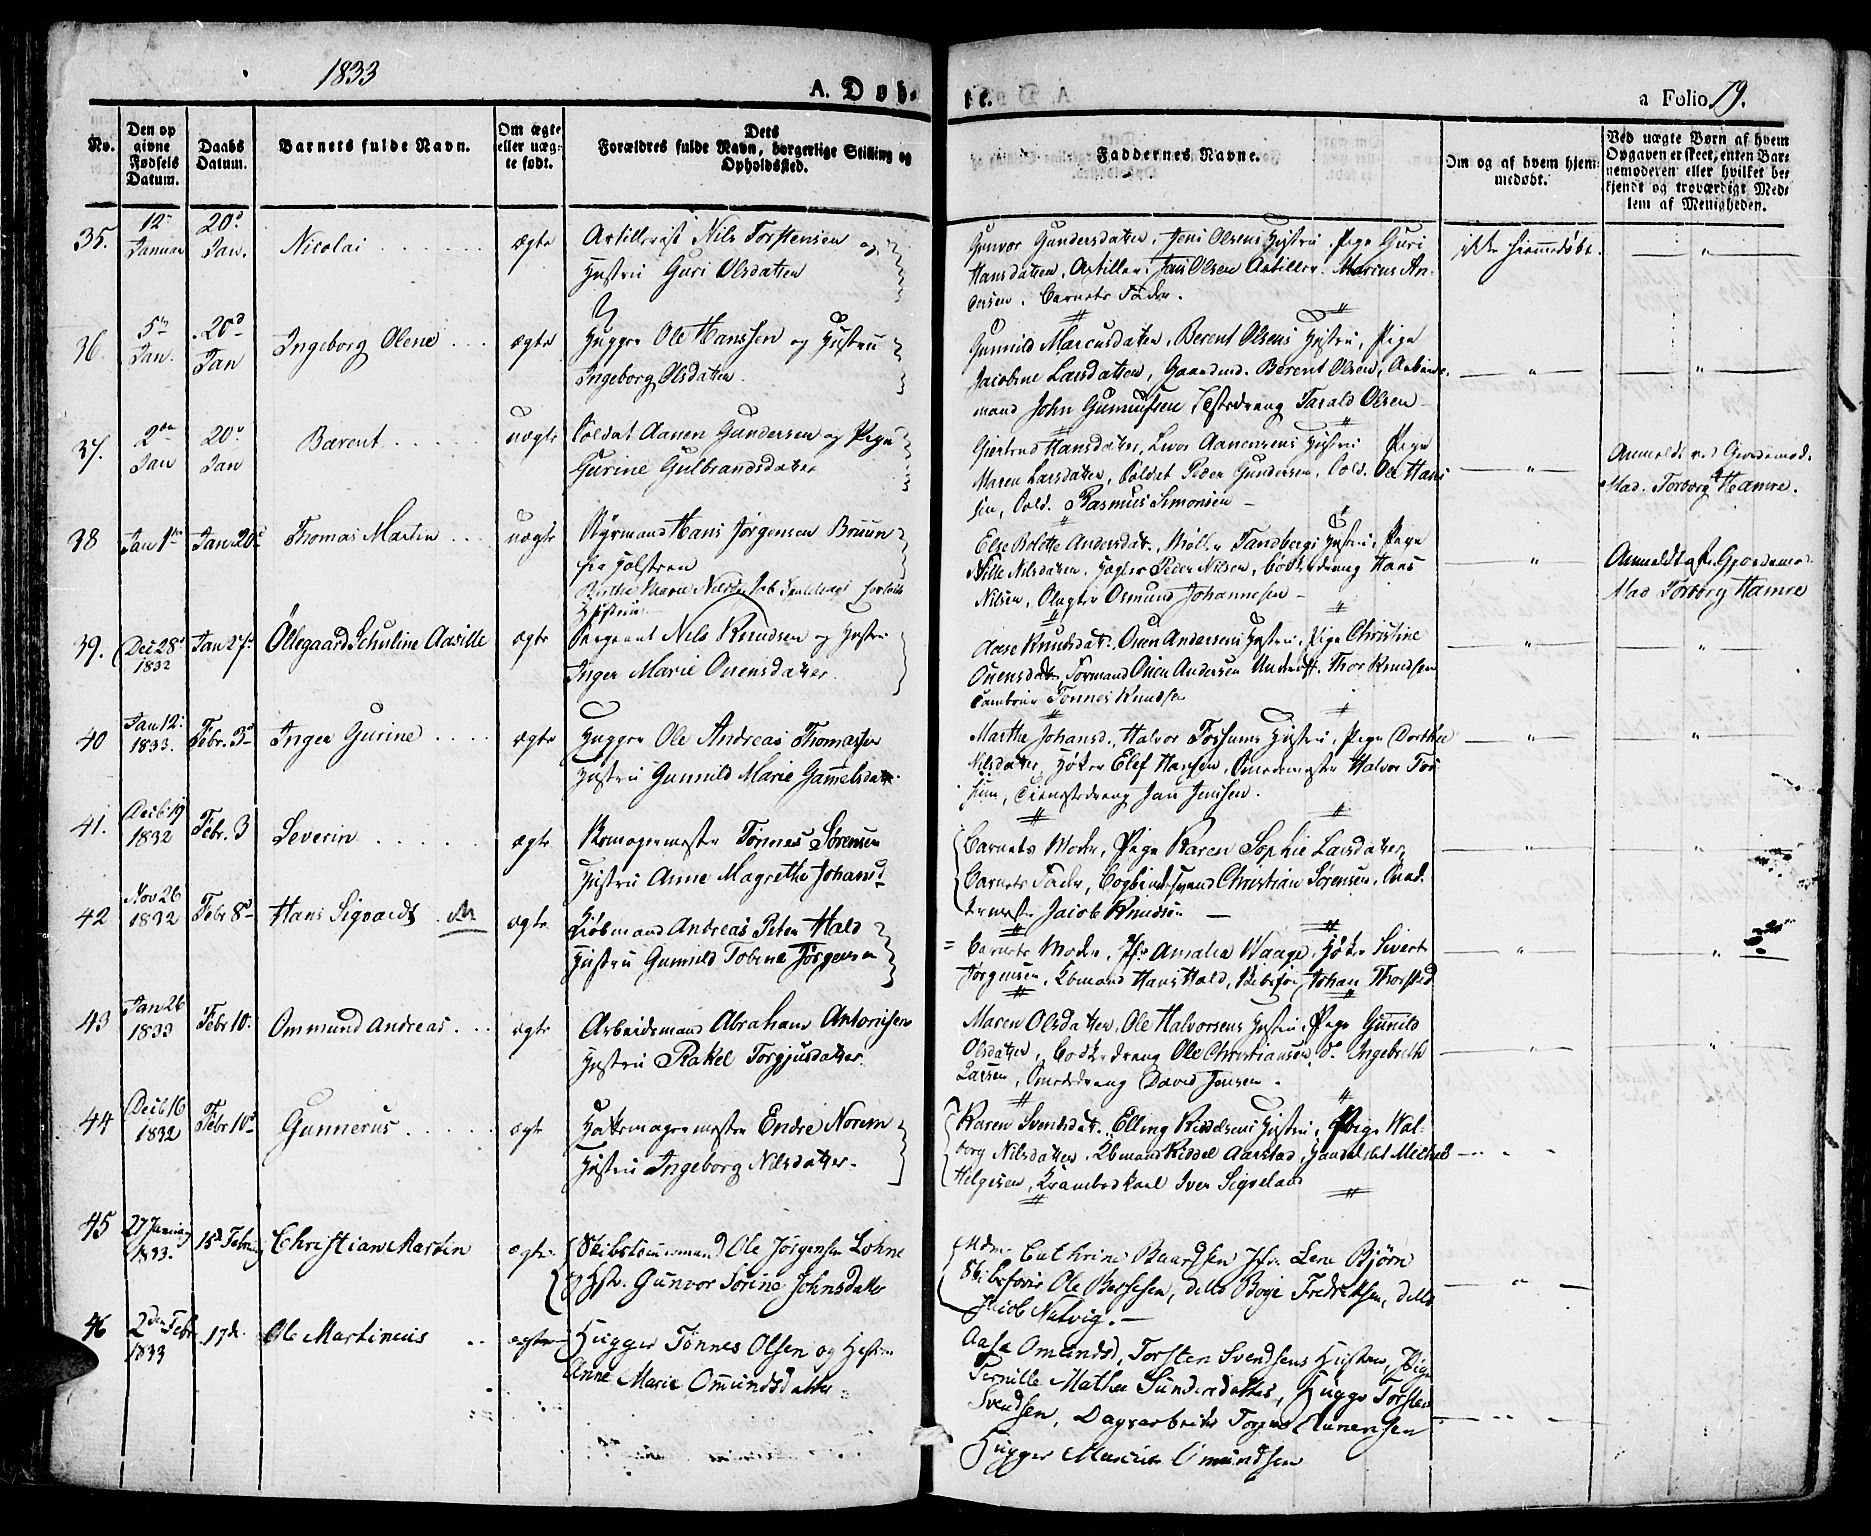 1833
A. Døb- te.
a Folio 19.
No.
Den op
givne
Fødsels
Datum.
Daabs
Datum.
Barnets fulde Navn.
Om ægte
eller uæg-
te født.
Dets
Forældres fulde Navn, borgerlige Stilling og
Opholdssted.
Faddernes Navne.
Om og af hvem hjem-
medøbt.
Ved uægte Børn af hvem
Opgaven er skeet, enten Bar-
nemoderen eller hvilket be-
kjendt og troværdigt Med-
lem af Menigheden.
35. 12 Januar 20d Jan. Nicolai ægte
Artillerist Nils Torstensen og
Hustru Guri Olsdatter
Gunvor Gundersdatter, Jens Olsens Hustru, Pige Guri
Hansdatter, Artiller. Jens Olsen Artiller. Marcus An-
dersen, Barnets Fader.
ikke hjemmedøbt
36. 5te Jan. 20d Jan Ingeborg Olene ægte
Hugger Ole Hanssen og Hustru
Ingeborg Olsdatter.
Gunnild Marcusdatter, Berent Olsens Hustru, Pige
Jacobine Larsdatter, Gaardmd. Berent Olsen, Arbeids-
mand John Gunnufsen Tarald Olsen
37. 2den Jan 20d Jan Barent uægte
Soldat Aanen Gundersen og Pige
Gurine Gulbrandsdatter
Giertrud Hansdatter, Aanensens Hustru Pige
Maren Larsdatter, Soldat Peder Gundersen, Sold. Ole Hans
sen, Sold. Rasmus Simonsen
Mad. Torborg Hamre.
38 Jan 1te Jan 20d Thomas Martin uægte
Styrmand Hans Jørgensen Bruun
fra Holsteen
Hustru
Else Bolette Andersdat., Møller Tandbergs Hustru, Pige
Sille Nilsdatter, Peder Nilsen, Bødkerdreng Hans
Nilsen, Osmund Johannesen
Anmeldt af Gjordemo-
Mad Torborg Hamre
39. Dec 28d 1832 Jan 27d Ollegaard Schuline Aasille ægte
Sergeant Nils Knudsen og Hustru
Inger Marie Ouensdatter
Aase Knudsdat. Ouen Andersens Hustru, Pige Christine
Ouensdat, Formand Ouen Andersen Thor Knudsen
Tambour Tønnes Knudsen
40 Jan 12. 1833. Febr. 3d Inger Gurine ægte
Hugger Ole Andreas Thomassen
Hustru Gunnild Marie Gammelsdatter
Marthe Johansd., Halvor Fossums Hustru, Pige Dorthee
Nilsdatter, Høker Elef Hansen, Halvor Fos
sum, Tienestedreng Jan Jensen.
41. Decb. 19 1832 Febr. 3 Severin ægte
Skomagermester Tønnes Sørensen
Hustru Anne Magrethe Johansd
Barnets Moder, Pige Karen Sophie Larsdatter
Barnets Fader, Bogbindersvend Christian Sørensen,
Jacob Knudsen
42 Nov 26 1832 Febr 8d Hans Sigvardt ægte
Kiøbmand Andreas Peter Hald
Hustru Gunnild Tobine Jørgensen
Barnets Moder, Jfr Amalia Waage, Høker Sivert
Jørgensen, Kbmand Hans Hald, Johan Thorsted
43 Jan 26 1833 Febr 10. Ommund Andreas ægte
Arbeidsmand Abraham Antonisen
Hustru Rakel Torgjusdatter
Maren Olsdatter, Ole Halvorsens Hustru, Pige Gunild
Olsdatter, Bødkerdreng Ole Christiansen, do Ingebreth
Larsen, David Jensen.
44 Decb 16 1832 Febr 10d Gunnerus ægte
Hattemagermester Endre Norem
Hustru Ingeborg Nilsdatter
Karen Svendsdat. Elling Hustru, Pige Wal-
borg Nilsdatter, Kbmand Aarstad, Michel
Helgesen, Krambodkarl Iver Sigveland
45 27 Januar 1833. 15d Februar Christian Martin ægte
Skibstømmermand Ole Jørgensen Lohne
og Hstr. Gunvor Sørine Johnsdatter
Mdm. Cathrine Baardsen Jfr. Lene Bjørn
Skibsfører Ole Berhesen, ditto Boye Fredriksen, ditto
Jacob Natvig.
46 2den Febr 1833 17d. Ole Martinius ægte
Hugger Tønnes Olsen og Hustru
Anne Marie Omundsdatter
Aase Omundsd, Torsten Svendsens Hustru, Pige
Pernille Mathea Gundersdatter, Hugger Torsten
Svendsen, Dagarbeider Torjus Aanensen
Hugger Marcus Omundsen